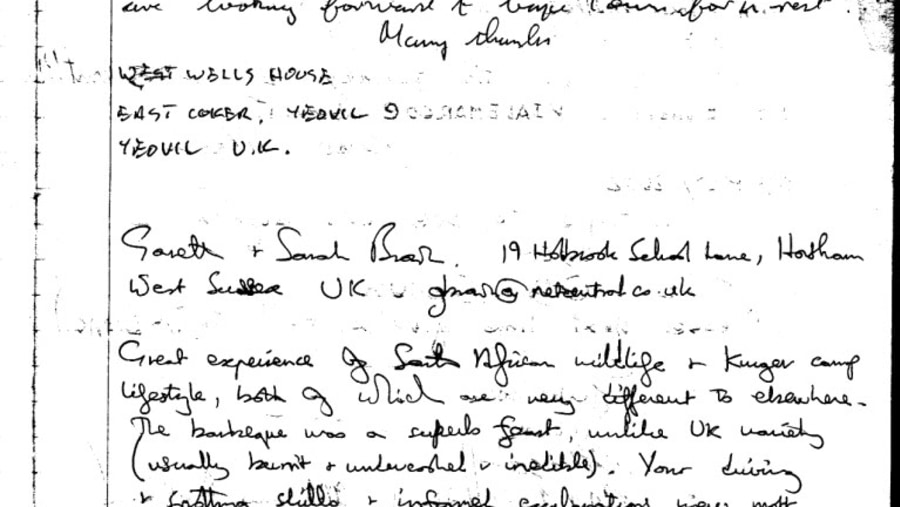 are looking forward to Cape Town for a rest.
Many thanks
WEST WELLS HOUSE
EAST COKER, YEOVIL 9
YEOVIL U.K.
Gareth + Sarah 19 Holbrook School Lane, Horsham
West Sussex UK netcentral.co.uk
Great experience of South African wildlife + Kruger camp
lifestyle, both of which are very different to elsewhere.
The barbeque was a superb feast, unlike UK variety
(usually burnt + undercooked + inedible). Your driving
+ spotting skills + informed explanations were most